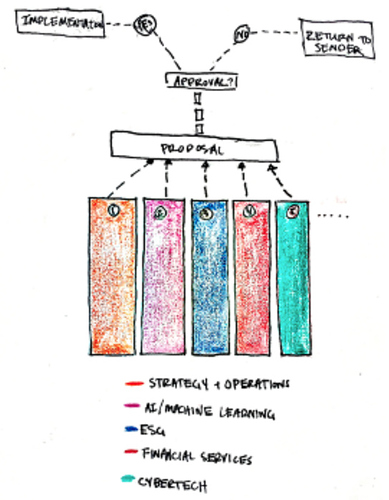 IMPLEMENTATION
YES
NO
RETURN TO
SENDER
APPROVAL?
PROPOSAL
1
2
3
4
5
.....
STRATEGY + OPERATIONS
AI/MACHINE LEARNING
ESG
FINANCIAL SERVICES
CYBERTECH